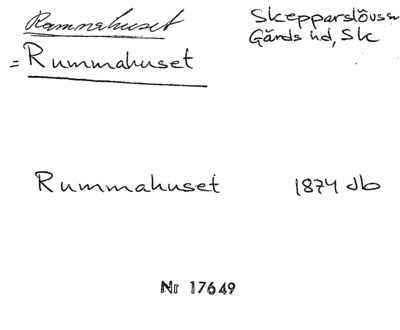 Rammahuset
= Rummahuset
Skepparslövs sn
Gärds hd, Sk
Rummahuset 1874 db
Nr 17649